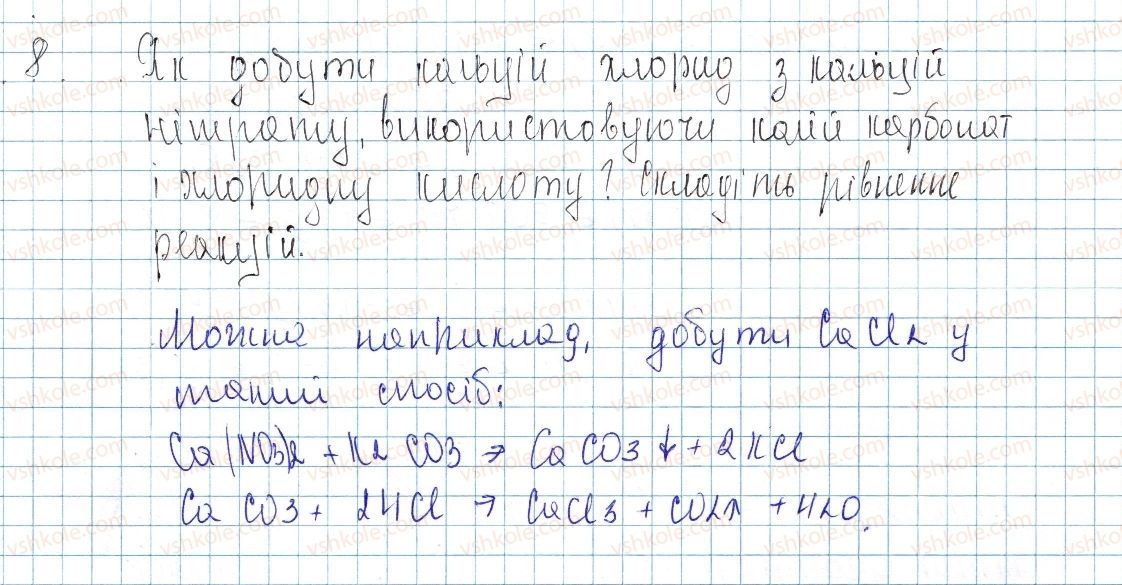 8. Як добути кальцій хлорид з кальцій
нітрату, використовуючи калій карбонат
і хлоридну кислоту? Складіть рівненне
реакцій.
Можна наприклад, добути CaCl2 у
такий спосіб:
Ca(NO3)2 + K2CO3 → CaCO3↓ + 2KCl
CaCO3 + 2HCl → CaCl3 + CO2↑ + H2O.
vshkole.com